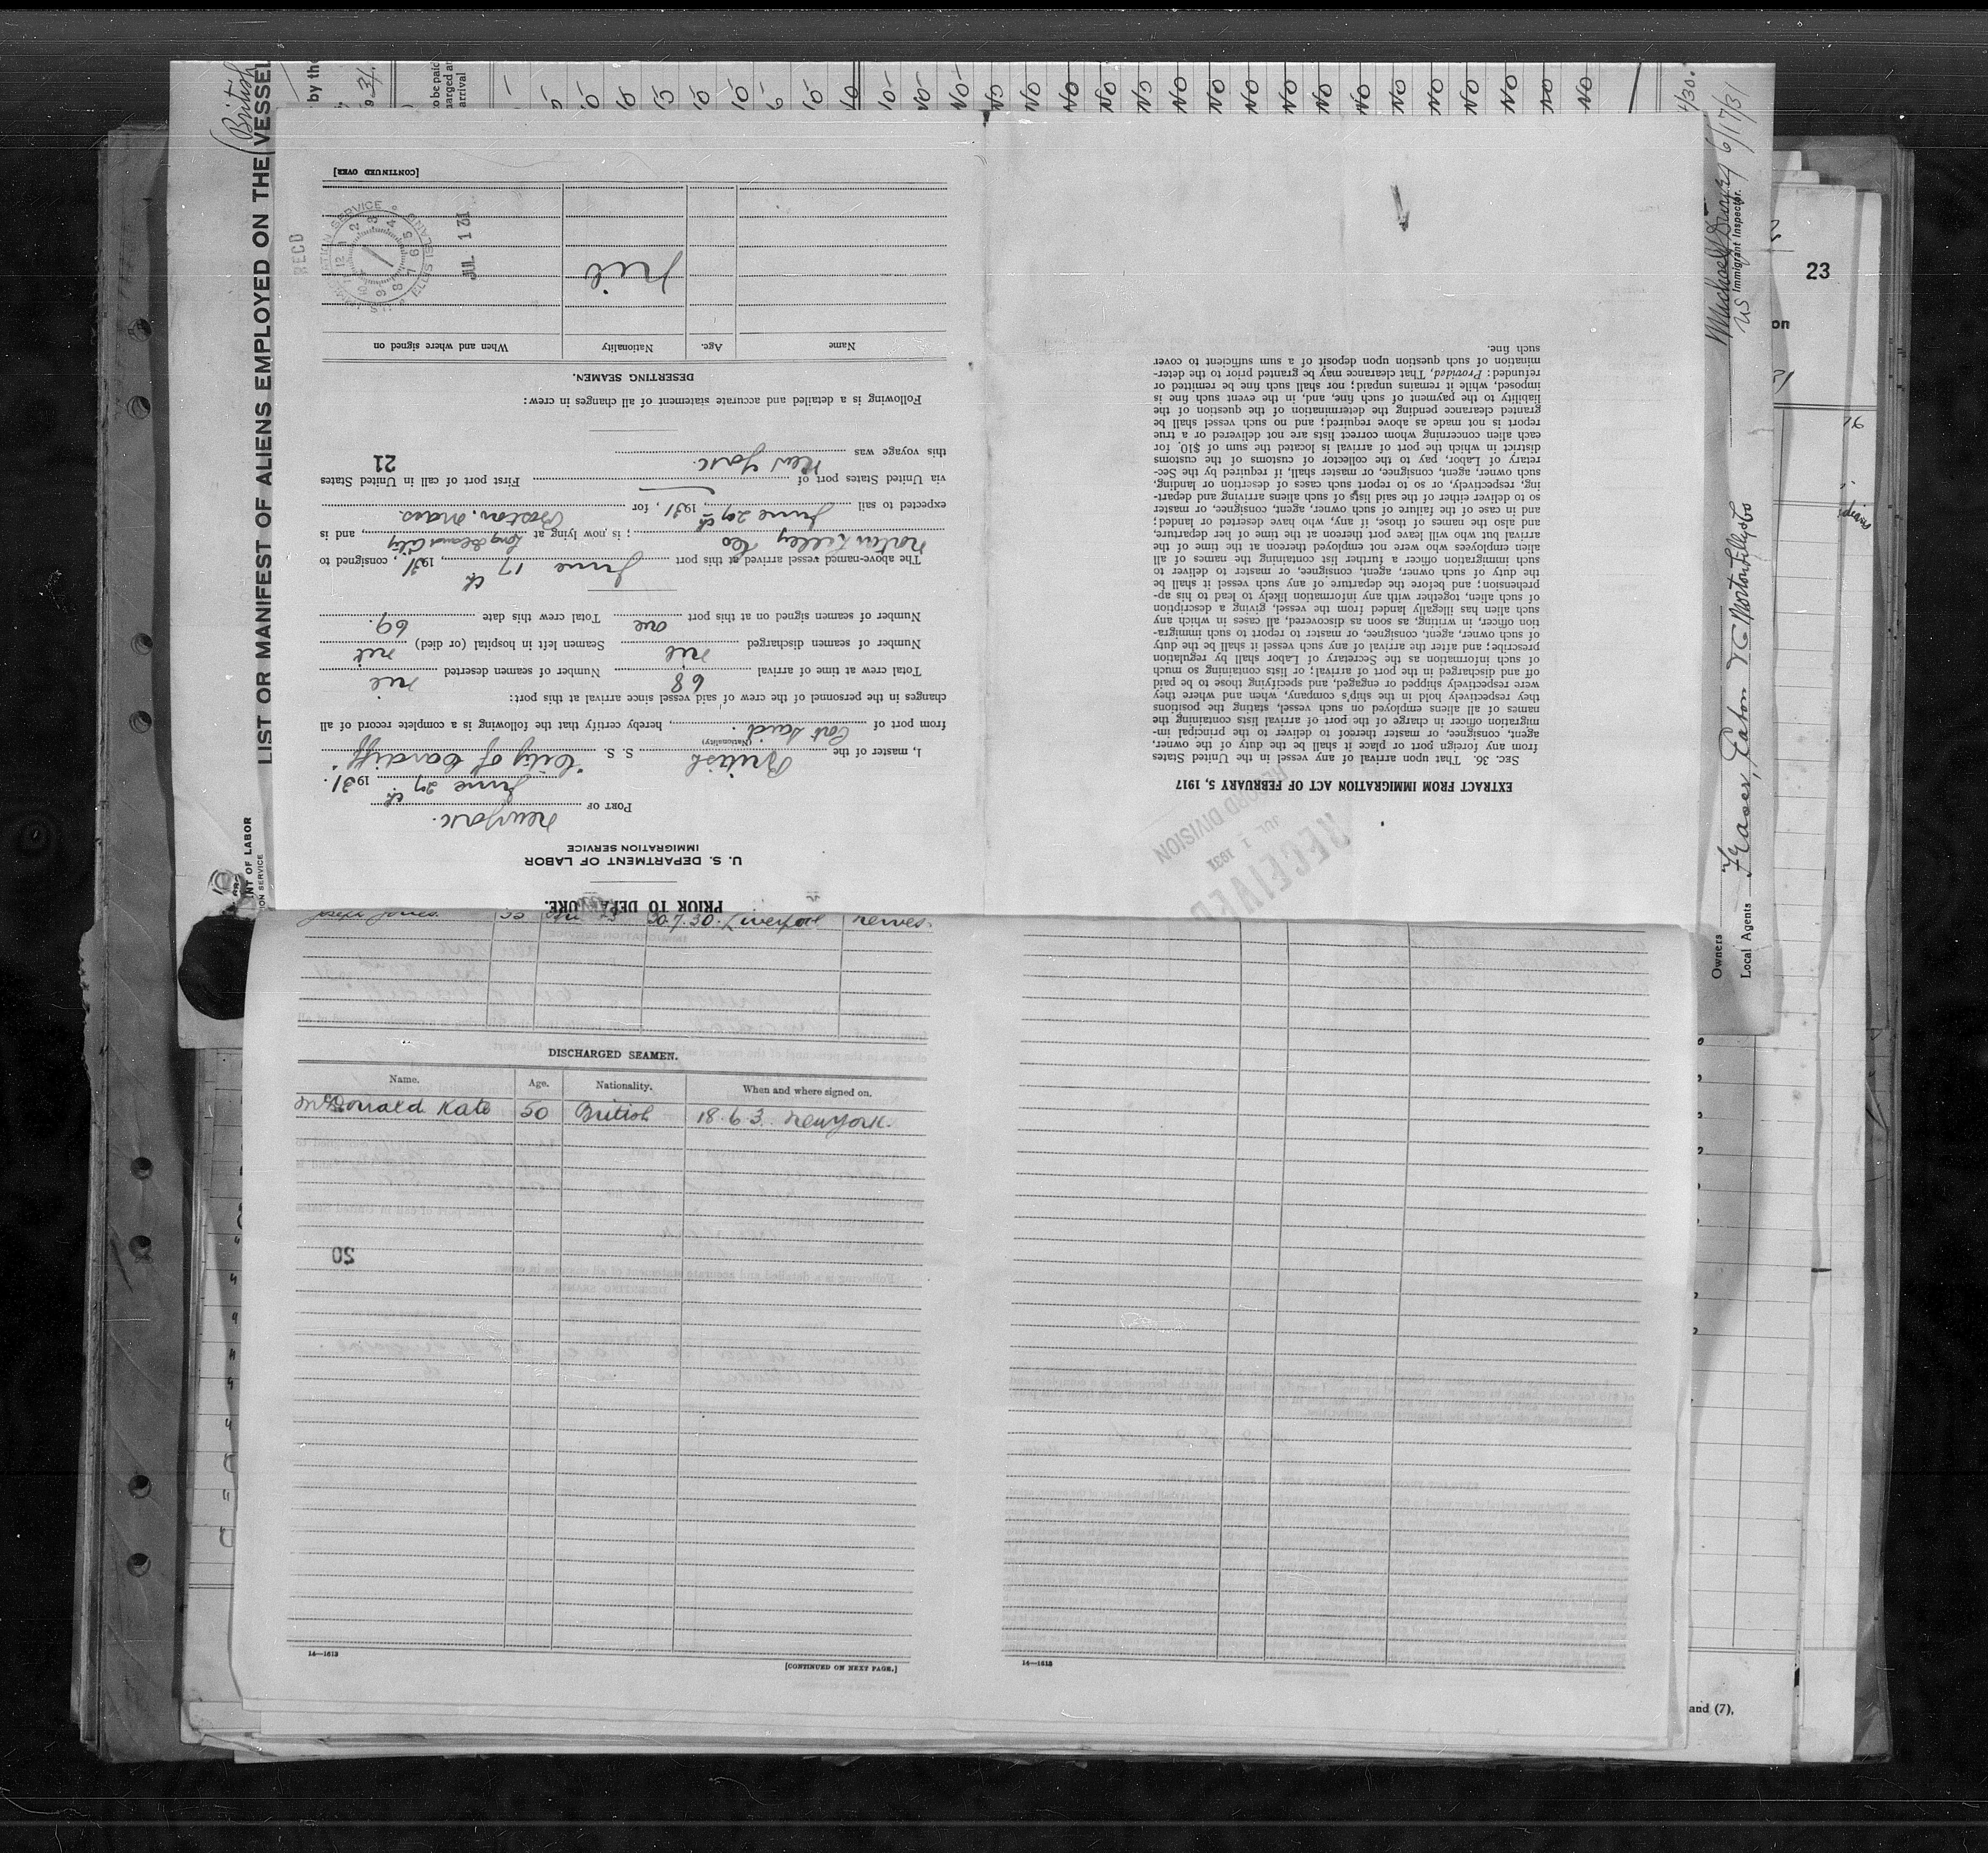 LIST OR MANIFEST OF ALIENS EMPLOYED ON THE VESSEL
(British
by the
to be paid
arrival
NT OF LABOR
ION SERVICE
PRIOR TO DEPARTURE.
U. S. DEPARTMENT OF LABOR
IMMIGRATION SERVICE
PORT OF New York.
June 29th 1931.
I, master of the British S. S. "City of Cardiff"
(Nationality)
from port of Port Said., hereby certify that the following is a complete record of all
changes in the personnel of the crew of said vessel since arrival at this port:
Total crew at time of arrival 68 Number of seamen deserted nil
Number of seamen discharged nil Seamen left in hospital (or died) nil
Number of seamen signed on at this port one Total crew this date 69.
The above-named vessel arrived at this port June 17th, 1931, consigned to
Norton Lilly Co; is now lying at Long Island City, and is
expected to sail June 29th, 1931, for Boston, Mass.
via United States port of First port of call in United States
this voyage was New York.
21
Following is a detailed and accurate statement of all changes in crew:
DESERTING SEAMEN.
Name Age. Nationality When and where signed on
nil
RECD
JUL 1 31
[CONTINUED OVER]
EXTRACT FROM IMMIGRATION ACT OF FEBRUARY 5, 1917
SEC. 36. That upon arrival of any vessel in the United States
from any foreign port or place it shall be the duty of the owner,
agent, consignee, or master thereof to deliver to the principal im-
migration officer in charge of the port of arrival lists containing the
names of all aliens employed on such vessel, stating the positions
they respectively hold in the ship's company, when and where they
were respectively shipped or engaged, and specifying those to be paid
off and discharged in the port of arrival; or lists containing so much
of such information as the Secretary of Labor shall by regulation
prescribe; and after the arrival of any such vessel it shall be the duty
of such owner, agent, consignee, or master to report to such immigra-
tion officer, in writing, as soon as discovered, all cases in which any
such alien has illegally landed from the vessel, giving a description
of such alien, together with any information likely to lead to his ap-
prehension; and before the departure of any such vessel it shall be
the duty of such owner, agent, consignee, or master to deliver to
such immigration officer a further list containing the names of all
alien employees who were not employed thereon at the time of the
arrival but who will leave port thereon at the time of her departure,
and also the names of those, if any, who have deserted or landed;
and in case of the failure of such owner, agent, consignee, or master
so to deliver either of the said lists of such aliens arriving and depart-
ing, respectively, or so to report such cases of desertion or landing,
such owner, agent, consignee, or master shall, if required by the Sec-
retary of Labor, pay to the collector of customs of the customs
district in which the port of arrival is located the sum of $10. for
each alien concerning whom correct lists are not delivered or a true
report is not made as above required; and no such vessel shall be
granted clearance pending the determination of the question of the
liability to the payment of such fine, and, in the event such fine is
imposed, while it remains unpaid; nor shall such fine be remitted or
refunded: Provided, That clearance may be granted prior to the deter-
mination of such question upon deposit of a sum sufficient to cover
such fine.
RECEIVED
JUL 1 1931
RECORD DIVISION
6/17/31
US Immigrant Inspector.
Owners
Local Agents Norton Lilly & Co
23
30.7.30. Liverpool
DISCHARGED SEAMEN.
Name. Age. Nationality. When and where signed on.
McDonald Kate 50 British 18.6.3. New York.
20
14—1613
[CONTINUED ON NEXT PAGE.]
14—1613
and (7),